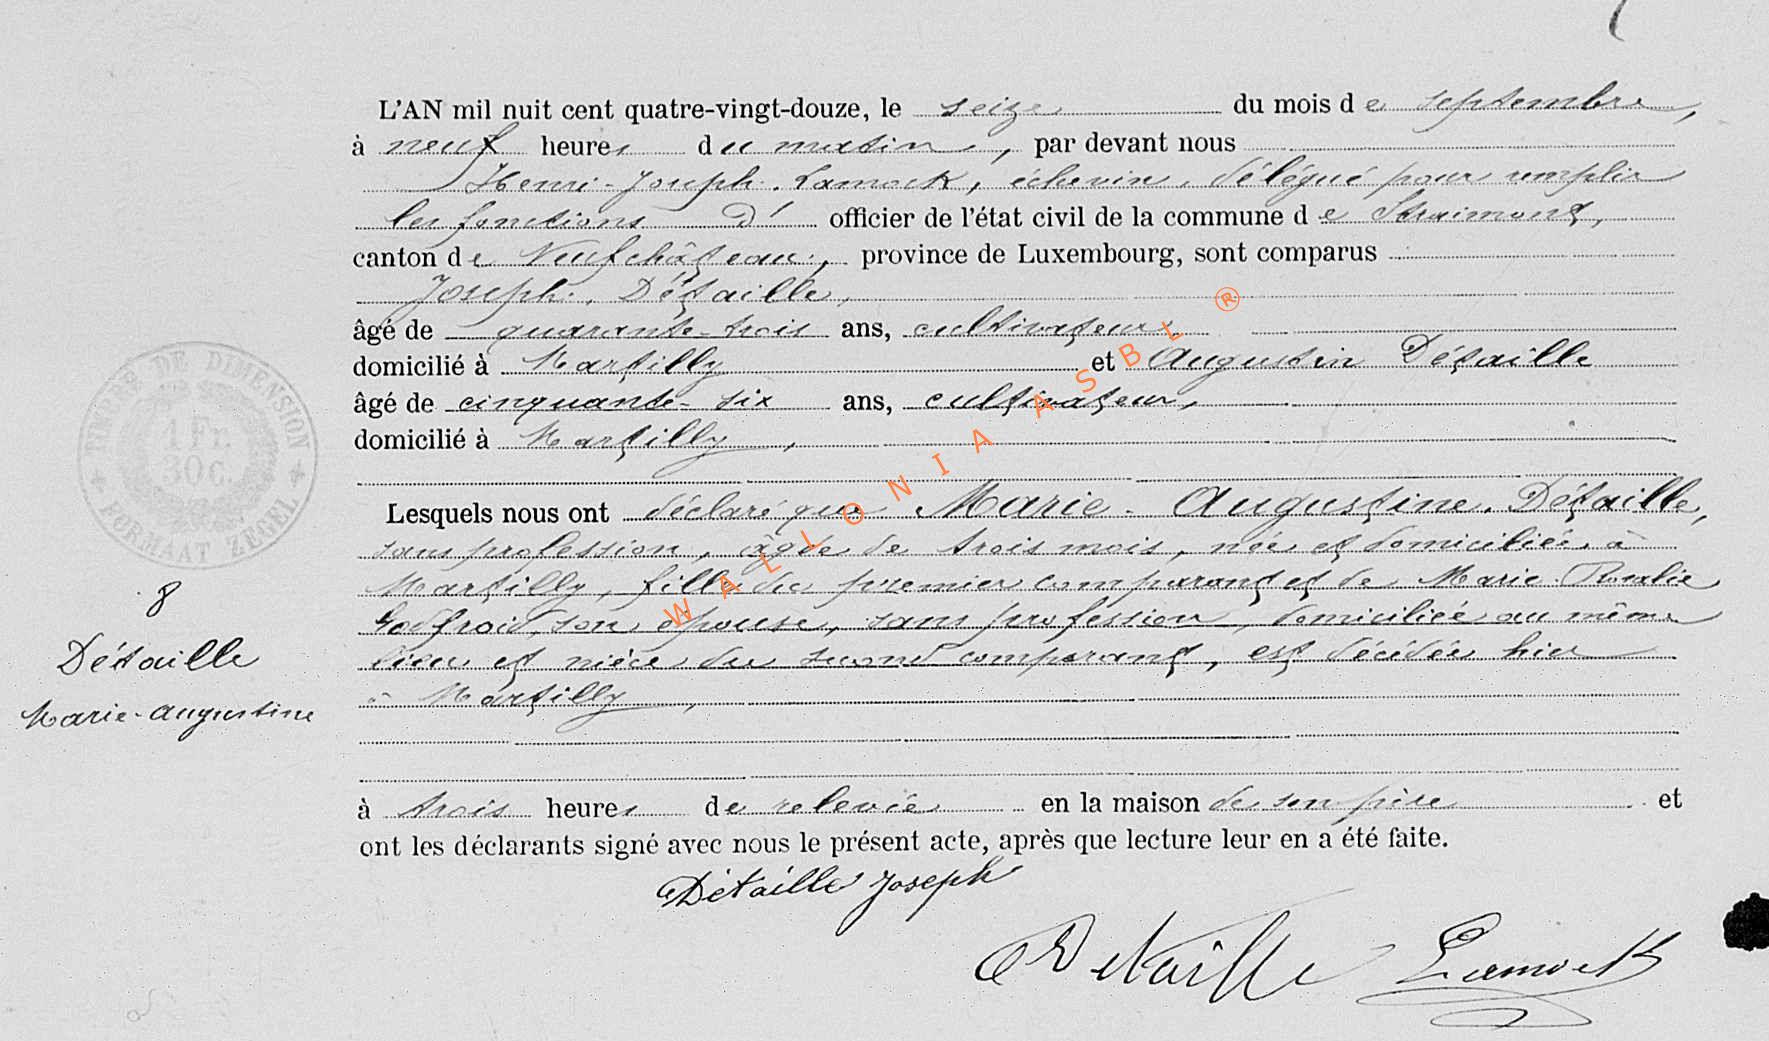 L'AN mil huit cent quatre-vingt-douze, le seize du mois de septembre,
à neuf heures du matin, par devant nous
Henri-Joseph Lamock, échevin, délégué pour remplir
les fonctions d' officier de l'état civil de la commune de Straimont,
canton de Neufchâteau, province de Luxembourg, sont comparus
Joseph Détaille,
âgé de quarante-trois ans, cultivateur
domicilié à Martilly et Augustin Détaille
âgé de cinquante-six ans, cultivateur,
domicilié à Martilly,
Lesquels nous ont déclaré que Marie-Augustine Détaille,
sans profession, âgée de trois mois, née et domiciliée à
Martilly, fille du premier comparant et de Marie Rosalie
Godfroid, son épouse, sans profession, domiciliée au même
lieu et nièce du second comparant, est décédée hier
à Martilly,
à trois heures de relevée en la maison de son père et
ont les déclarants signé avec nous le présent acte, après que lecture leur en a été faite.
Détaille Joseph
Detaille Lamock
8
Détaille
Marie-Augustine
TIMBRE DE DIMENSION
1 Fr.
30 c.
FORMAAT ZEGEL
WALLONIA ASBL ®